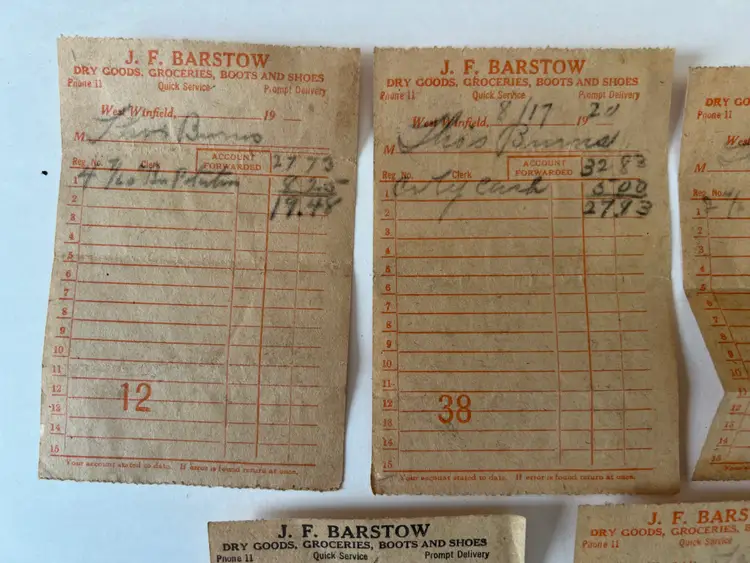 J. F. BARSTOW
DRY GOODS, GROCERIES, BOOTS AND SHOES
Phone 11 Quick Service Prompt Delivery
West Winfield, 19
M Thos Burns
Reg. No. Clerk ACCOUNT FORWARDED 27 73
1 8 25
2 19.48
3
4
5
6
7
8
9
10
11
12
13
14
15
12
Your account stated to date. If error is found return at once.
J. F. BARSTOW
DRY GOODS, GROCERIES, BOOTS AND SHOES
Phone 11 Quick Service Prompt Delivery
West Winfield, 8/17 1920
M Thos Burns
Reg. No. Clerk ACCOUNT FORWARDED 32 83
1 Cr by Cash 5 00
2 27.93
3
4
5
6
7
8
9
10
11
12
13
14
15
38
Your account stated to date. If error is found return at once.
DRY GO
Phone 11
West
M
Reg. No.
1
2
3
4
5
6
7
8
9
10
11
12
13
14
15
Your
J. F. BARSTOW
DRY GOODS, GROCERIES, BOOTS AND SHOES
Phone 11 Quick Service Prompt Delivery
J. F. BARS
DRY GOODS, GROCERIES, B
Phone 11 Quick Serv